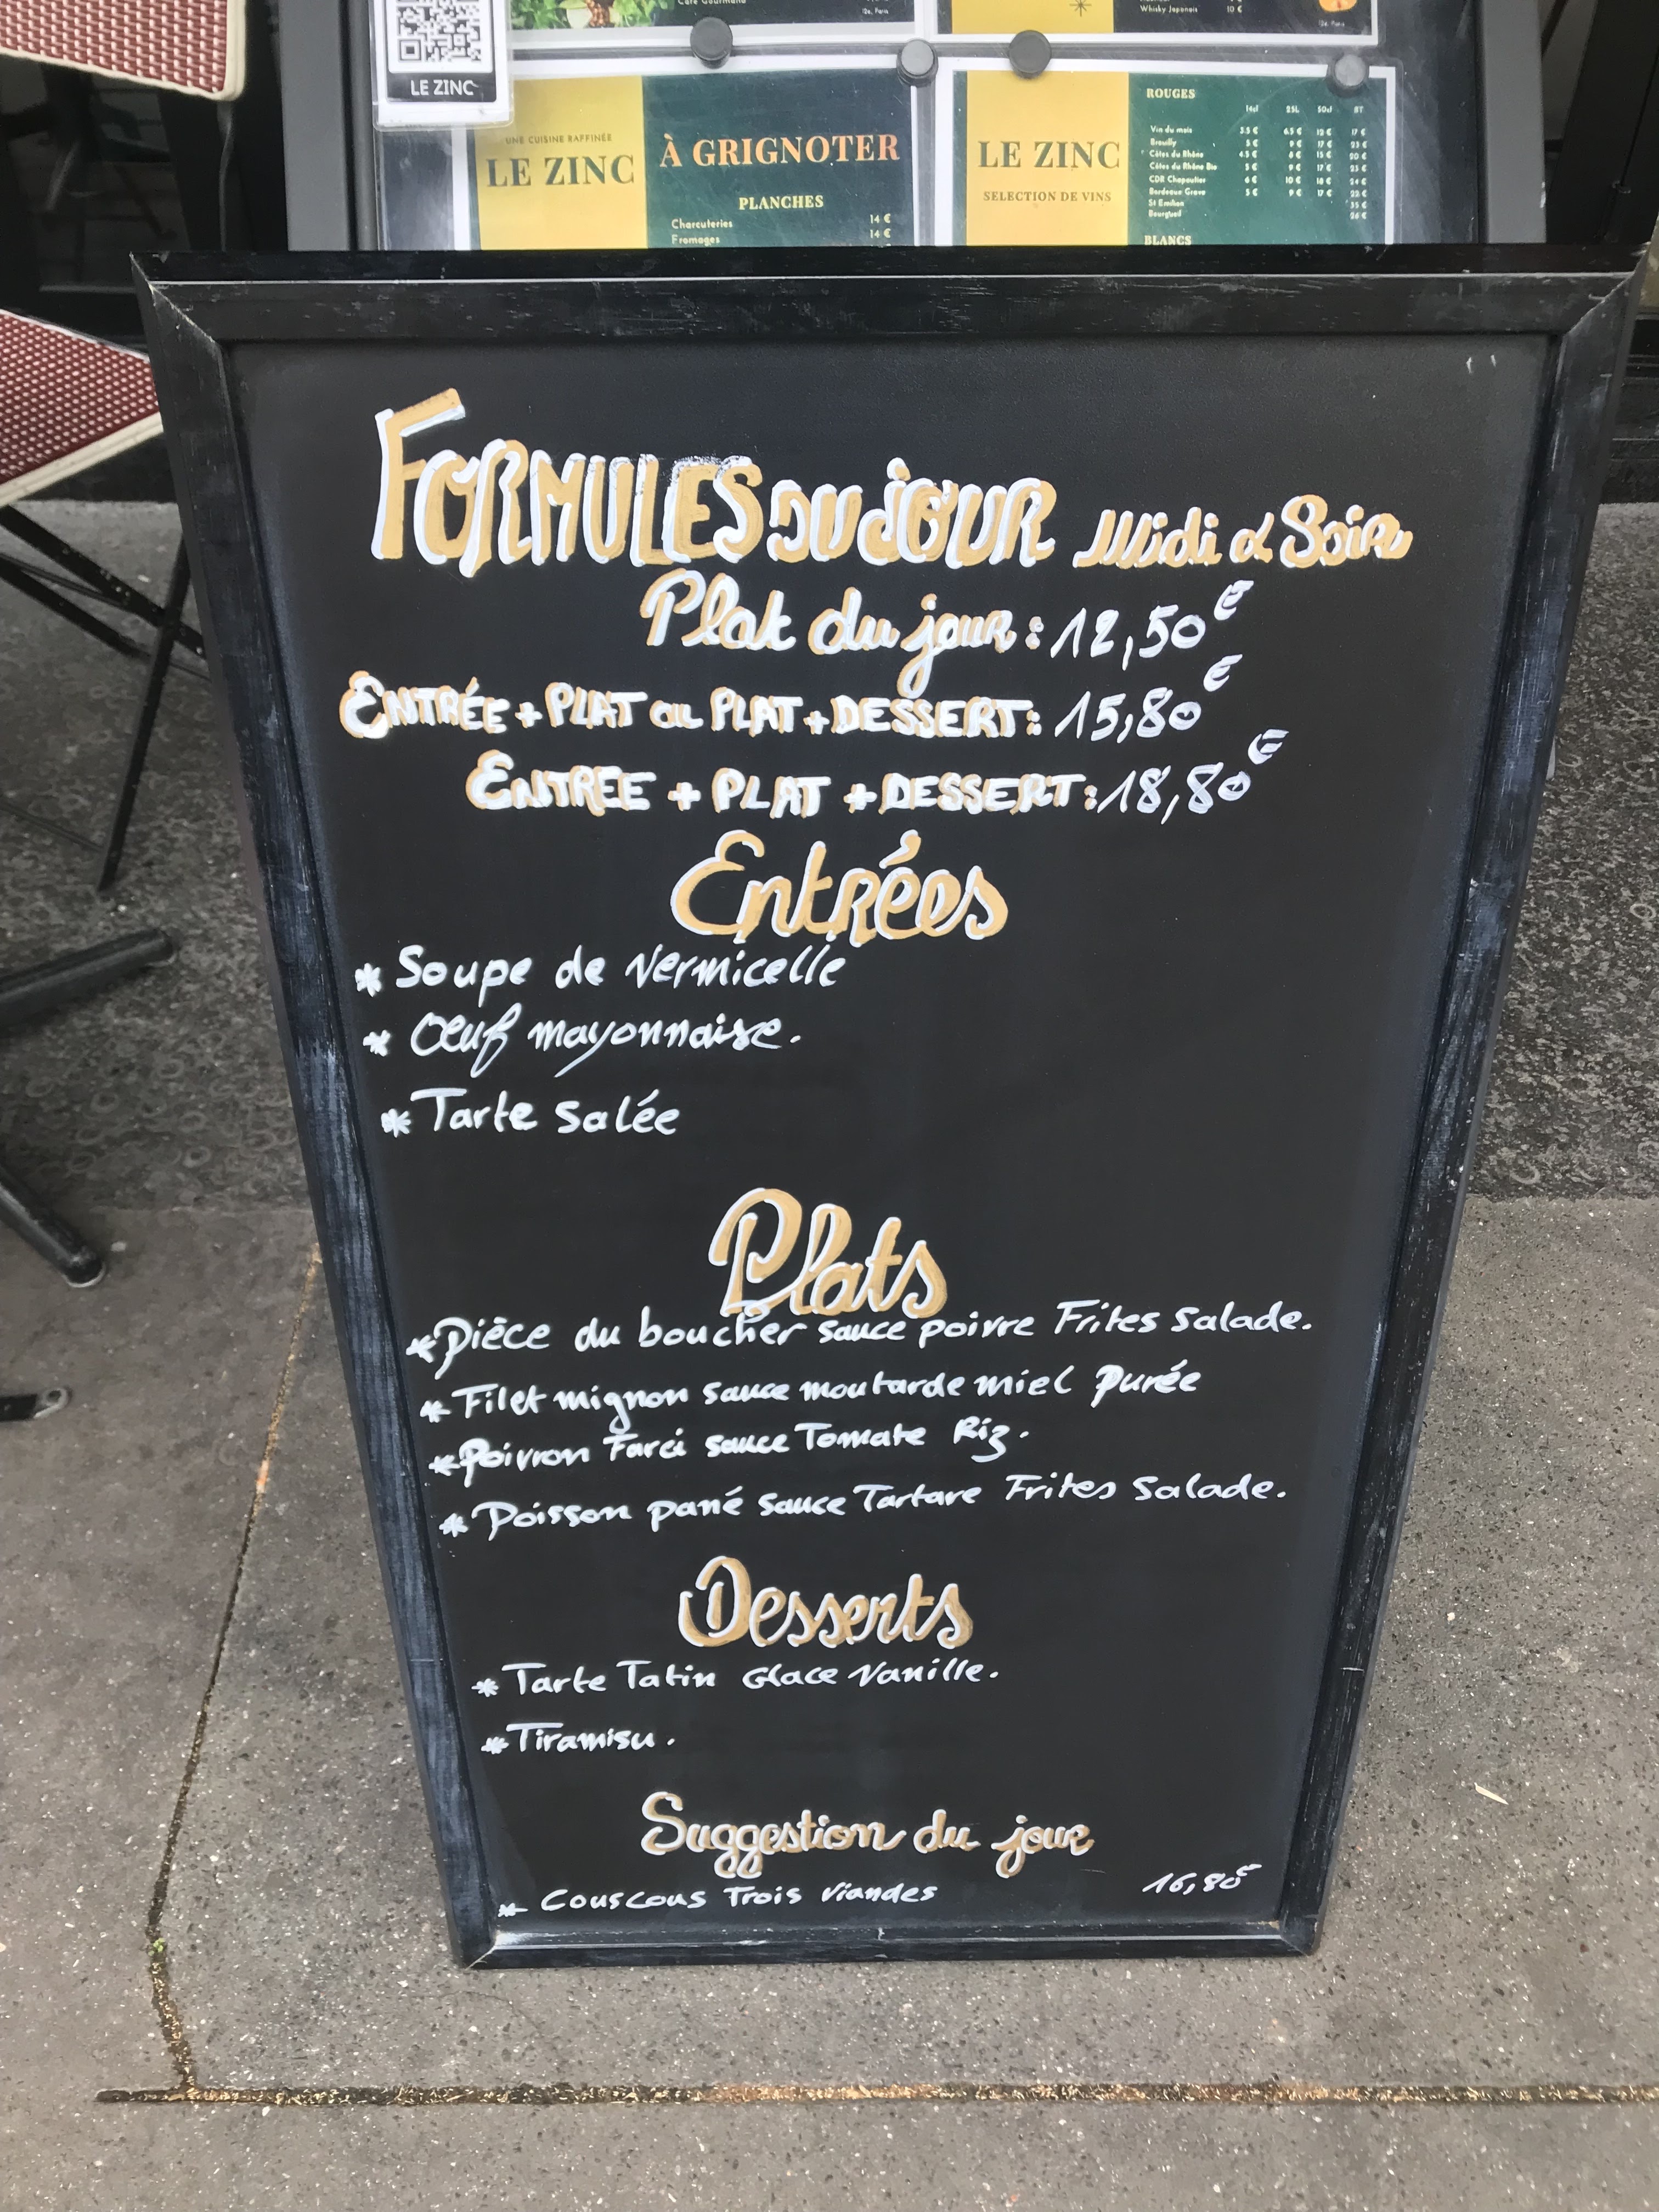 Café Gourmand
12e, Paris
Whisky Japonais 10 €
12e, Paris
LE ZINC
UNE CUISINE RAFFINÉE
LE ZINC
À GRIGNOTER
PLANCHES
Charcuteries 14 €
Fromages 14 €
LE ZINC
SELECTION DE VINS
ROUGES
14cl 25L 50cl BT
Vin du mois 3.5 € 6.5 € 12 € 17 €
Brouilly 5 € 9 € 17 € 23 €
Côtes du Rhône 4.5 € 8 € 15 € 20 €
Côtes du Rhône Bio 5 € 9 € 17 € 23 €
CDR Chapoutier 6 € 10 € 18 € 24 €
Bordeaux Grave 5 € 9 € 17 € 22 €
St Emilion 35 €
Bourgueil 26 €
BLANCS
FORMULES DU JOUR Midi & Soir
Plat du jour : 12,50€
ENTRÉE + PLAT ou PLAT + DESSERT : 15,80€
ENTREE + PLAT + DESSERT : 18,80€
Entrées
* Soupe de Vermicelle
* Œuf mayonnaise.
* Tarte Salée
Plats
* Pièce du boucher sauce poivre Frites Salade.
* Filet mignon sauce moutarde miel purée
* Poivron Farci sauce Tomate Riz.
* Poisson pané sauce Tartare Frites Salade.
Desserts
* Tarte Tatin Glace Vanille.
* Tiramisu.
Suggestion du jour
* Couscous Trois Viandes 16,80€